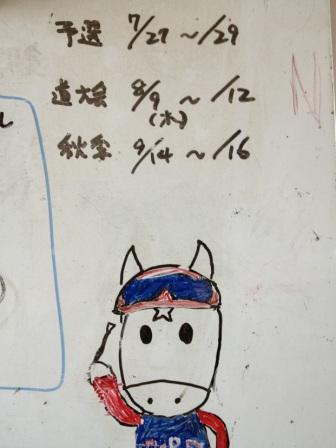 予選 7/27～/29
道大会 8/9～/12
(木)
秋季 9/14～/16